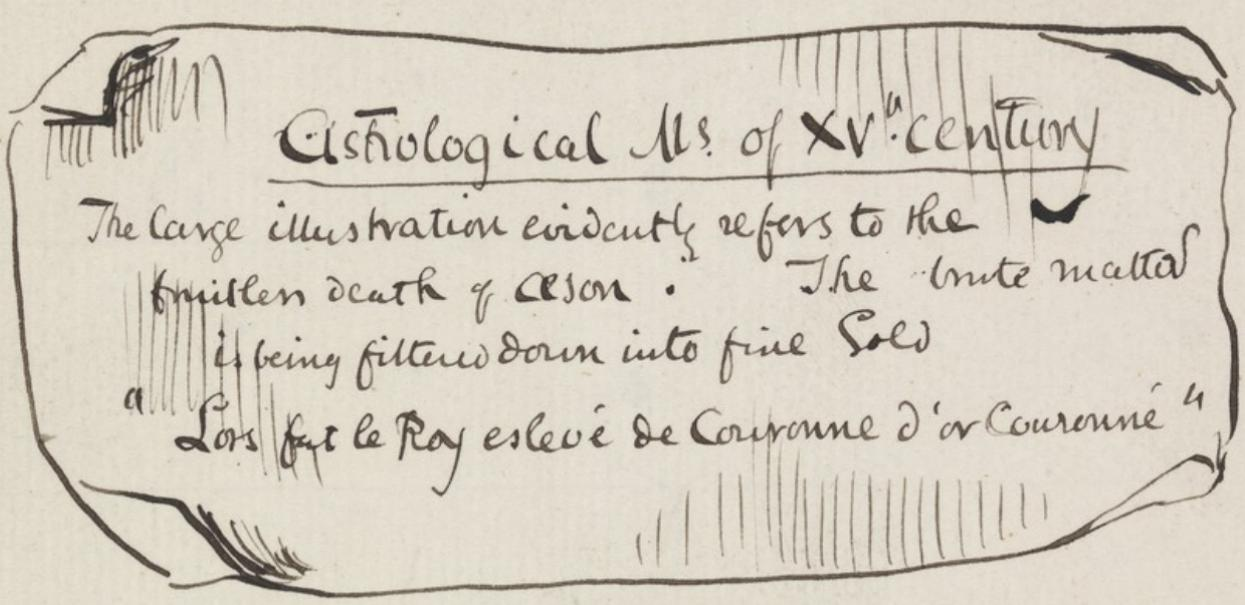 Astrological Ms. of XVth century
The large illustration evidently refers to the
death of Æson. The brute matter
is being filtered down into fine Gold
"Lors fut le Roy eslevé de Couronne d'or Couronné"